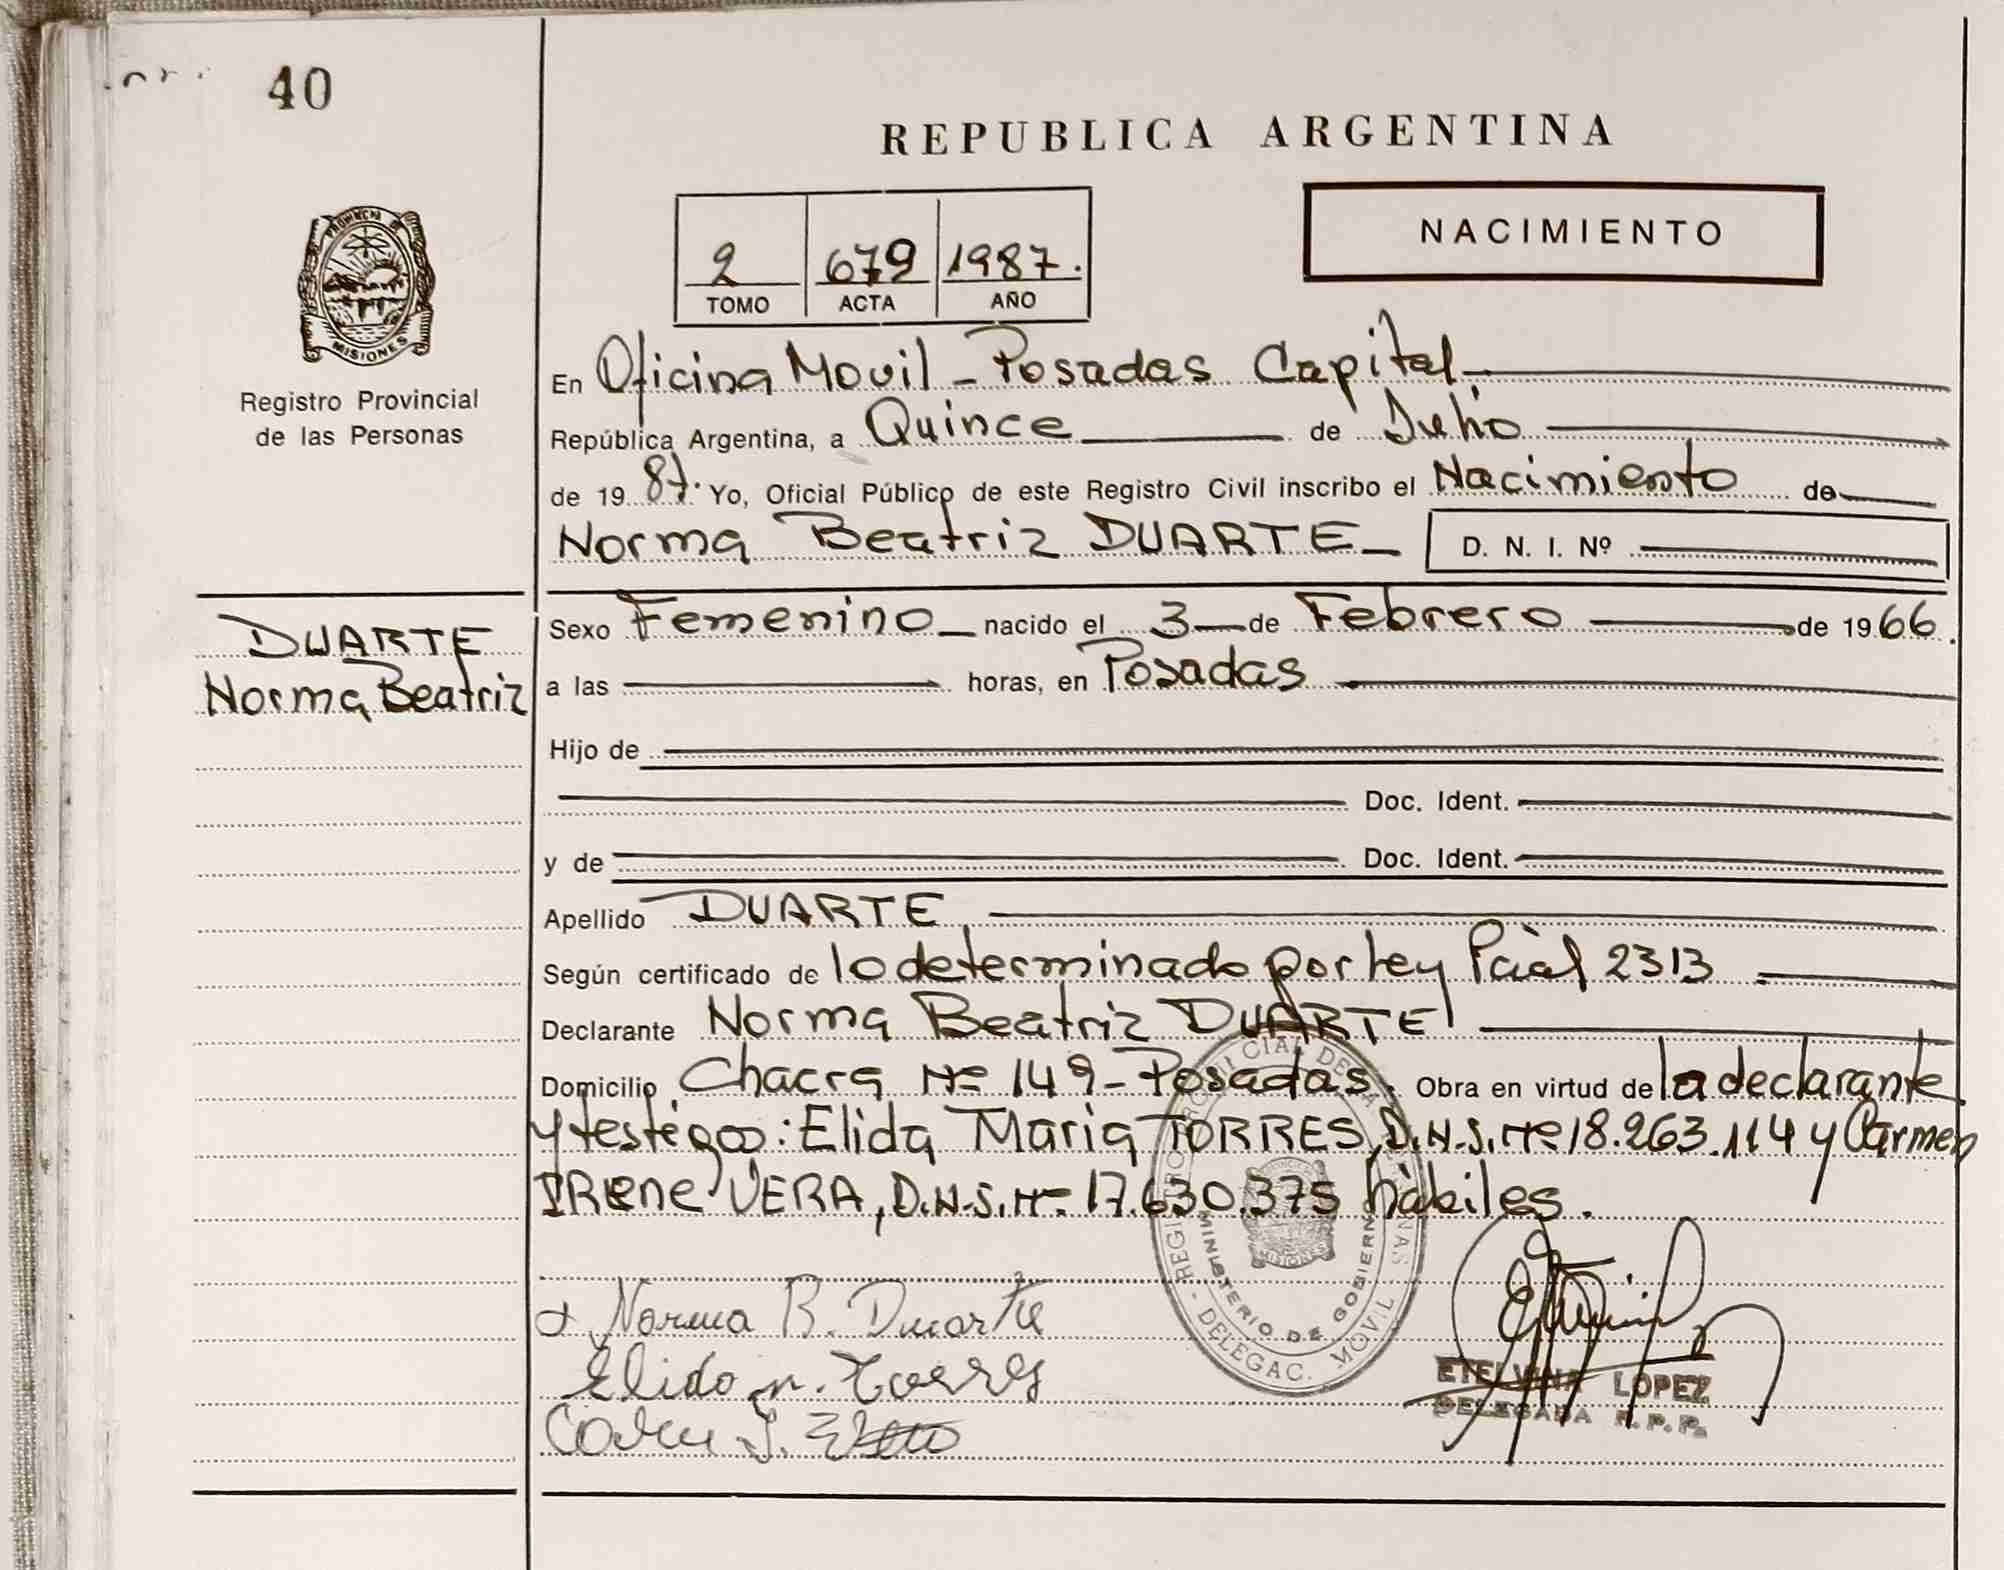 40
REPUBLICA ARGENTINA
NACIMIENTO
2 679 1987.
TOMO ACTA AÑO
PROVINCIA DE
MISIONES
Registro Provincial
de las Personas
En Oficina Movil - Posadas Capital.
República Argentina, a Quince de Julio
de 19 87. Yo, Oficial Público de este Registro Civil inscribo el Nacimiento de
Norma Beatriz DUARTE D. N. I. Nº
DUARTE
Norma Beatriz
Sexo Femenino nacido el 3 de Febrero de 19 66.
a las horas, en Posadas
Hijo de
Doc. Ident.
y de Doc. Ident.
Apellido DUARTE
Según certificado de lo determinado por Ley Pciál 2313
Declarante Norma Beatriz DUARTE
Domicilio Chacra Nº 149 - Posadas. Obra en virtud de la declarante
y testigos: Elida Maria TORRES, D.N.I. Nº 18.263.114 y Carmen
IRene VERA, D.N.I. Nº 17.630.375 hàbiles.
MINISTERIO DE GOBIERN
DELEGAC. MOVIL
MISIONES
Norma B. Duarte
Elida m. Torres
ETELVINA LOPEZ
DELEGADA R. P. P.